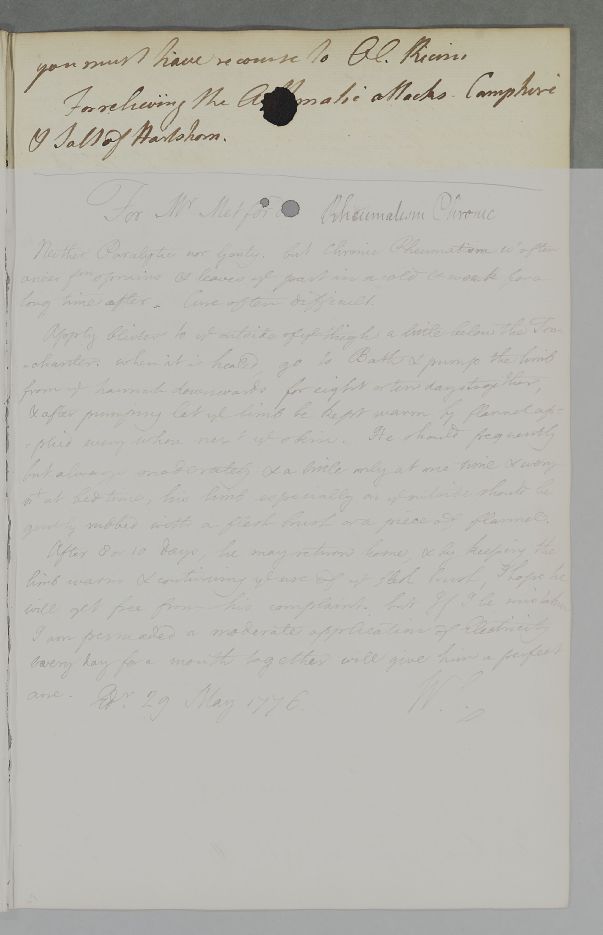 you must have recourse to Ol. Ricini
For relieving the matic attacks. Camphire
& Salt of Hartshorn.
For Mr Metford Rheumatism Chronic
Neither Paralytic nor Gouty. but Chronic Rheumatism wh often
arises from sprains & leaves ye part in a cold & weak for a
long time after. Cure often difficult.
Apply blister to ye outside of ye thigh a little below the Tro-
-chanter. when it is healed, go to Bath & pump the limb
from ye downwards for eight or ten days together,
& after pumping let ye limb be kept warm by flannel ap-
-plied every where next ye skin. He should frequently
but always moderately & a little only at one time & every
nt at bed time, his limb especially on ye outside should be
gently rubbed with a flesh brush or a piece of flannel.
After 8 or 10 days, he may return home, & by keeping the
limb warm & continuing ye use of ye flesh brush, I hope he
will get free from his complaint. but If I be mistaken
I am persuaded a moderate application of Electricity
every day for a month together will give him a perfect
cure. Edr. 29 May 1776. W.